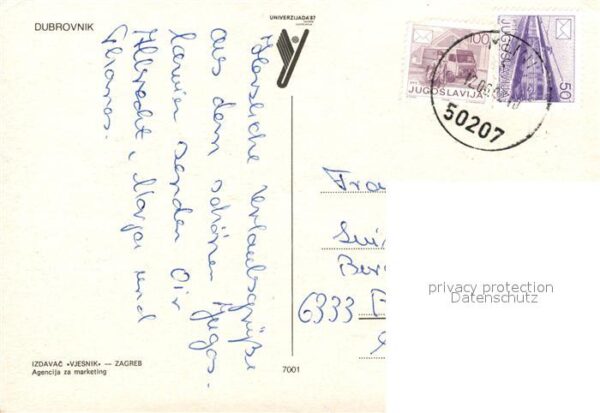 DUBROVNIK
UNIVERZIJADA'87
Herzliche Urlaubsgrüße
aus dem schönen Jugos-
lawien senden Dir
Albrecht, Marga und
Thomas.
100
JUGOSLAVIJA
JUGOSLAVIJA
50
50207
Fra
Ber
6333
privacy protection
Datenschutz
IZDAVAČ «VJESNIK» — ZAGREB
Agencija za marketing
7001